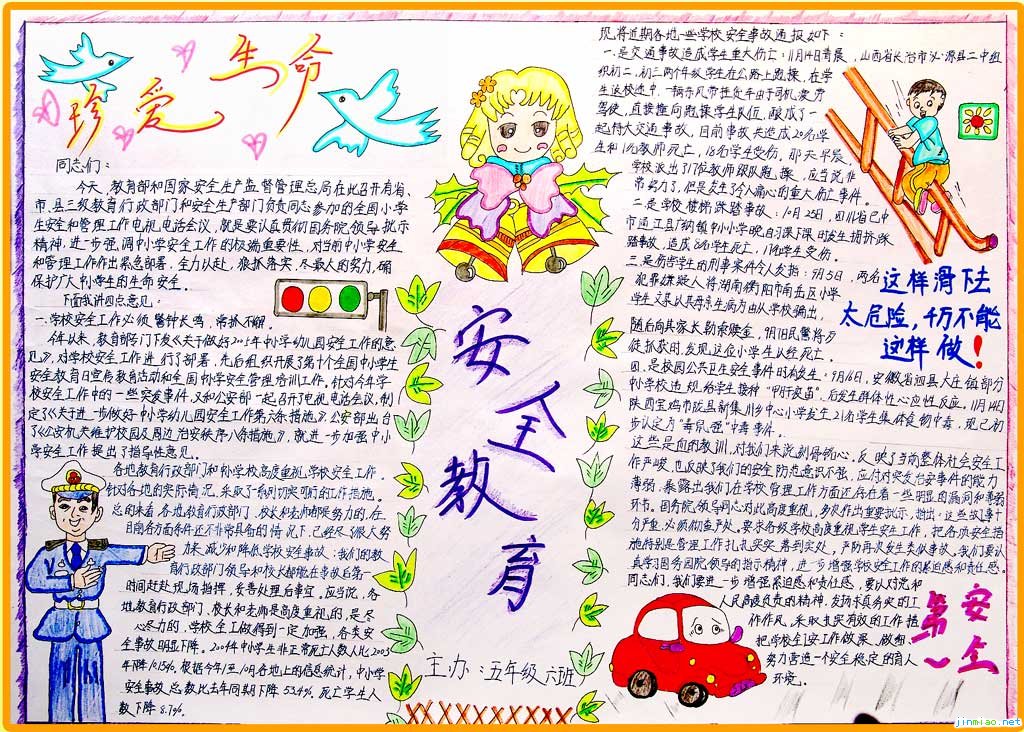 珍爱生命
同志们：
今天，教育部和国家安全生产监督管理总局在此召开有省、
市、县三级教育行政部门和安全生产部门负责同志参加的全国小学
生安全和管理工作电视电话会议，就是要认真贯彻国务院领导批示
精神，进一步强调中小学安全工作的极端重要性，对当前中小学安全
和管理工作作出紧急部署，全力以赴，狠抓落实，尽最大的努力，确
保护广大中小学生的生命安全。
下面我讲四点意见：
一、学校安全工作必须警钟长鸣，常抓不懈。
今年以来，教育部专门下发《关于做好2005年中小学幼儿园安全工作的意
见》，对学校安全工作进行了部署，先后组织开展了第十个全国中小学生
安全教育日宣传教育活动和全国中小学安全管理培训工作，针对今年学
校安全工作中的一些突发事件，又和公安部一起召开了电视电话会议，制
定了《关于进一步做好中小学幼儿园安全工作第六条措施》。公安部出台
了《公安机关维护校园及周边治安秩序八条措施》，就进一步加强中小
学安全工作提出了指导性意见。
各地教育行政部门和中小学校高度重视学校安全工作，
针对各地的实际情况，采取了一系列切实可行的工作措施。
总的来看，各地教育行政部门、校长和老师都很努力的，在
目前各方面条件还不非常具备的情况下，已经尽了很大努
力来减少和降低学校安全事故；我们的教
育行政部门领导和校长都能在事故后第一
时间赶赴现场指挥，妥善处理后事宜，应当说，各
地教育行政部门、校长和老师是高度重视的，是尽
心尽力的，学校安全工做得到一定加强，各类安
全事故明显下降。2004年中小学生非正常死亡人数比2003
年降10.15%。根据今年1至10月各地上的信息统计，中小学
安全事故总数比去年同期下降53.49%，死亡学生人
数下降8.7%。
安全教育
主办：五年级六班
现将近期各地一些学校安全事故通报如下：
一是交通事故造成学生重大伤亡：11月14日清晨，山西省长治市沁源县二中组
织初二、初三两个年级学生在公路上跑操，在学
生返校途中，一辆东风带挂货车由于司机疲劳
驾驶，直接撞向跑操学生队伍，酿成了一
起特大交通事故，目前事故夫造成20名学
生和1名教师死亡，18名学生受伤。那天早晨，
学校派出了17位教师跟队跑操，应当说非
常努力了，但是发生了令人痛心的重大伤亡事件。
二是学校楼梯踩踏事故：10月25日，四川省巴中
市通江县广纳镇中小小学晚自习课下课时发生拥挤踩
踏事故，造成8名学生死亡，17名学生受伤。
三是伤害学生的刑事案件令人发指：9月5日，两名
犯罪嫌疑人将湖南衡阳市南岳区小学
学生文具以其母亲生病为由从学校骗出，
随后向其家长勒索赎金，9月10日警将歹
徒抓获时，发现这位小学生以经死亡。
四、是校园公共卫生安全事件时有发生：9月16日，安徽省泗县大庄镇部分
中小学校违规给学生接种“甲肝疫苗”，后发生群体性心应性反应。11月14日
陕西宝鸡市陇县新集川乡中心小学发生21名学生集体食物中毒，现已初
步认定为“毒鼠强”中毒事件。
这些是血的教训，对我们来说刻骨铭心，反映了当前整体社会安全工
作严峻，也反映了我们的安全防范意识不强，应付对突发治安事件的能力
薄弱，暴露出我们在学校管理工作方面还存在着一些明显的漏洞和薄弱
环节。国务院领导同心对此高度重视，多次作出重要批示，指出：这些故事十
分严重，必须彻查严处。要求各级学校高度重视学生安全工作，把各项安全措
施特别是管理工作扎扎实实落到实处，严防再次发生类似事故，我们要认
真学习国务院领导的指示精神，进一步增强学校安全工作的紧迫感和责任感。
同志们，我们要进一步增强紧迫感和责任感，要以对党和
人民高度负责的精神，发扬求真务实的工
作作风，采取求实有效的工作措
把学校全工安工作做深、做细，
努力营造一个安全稳定的育人
环境。
这样滑下去
太危险，千万不能
这样做！
安全第一
jinmiao.net